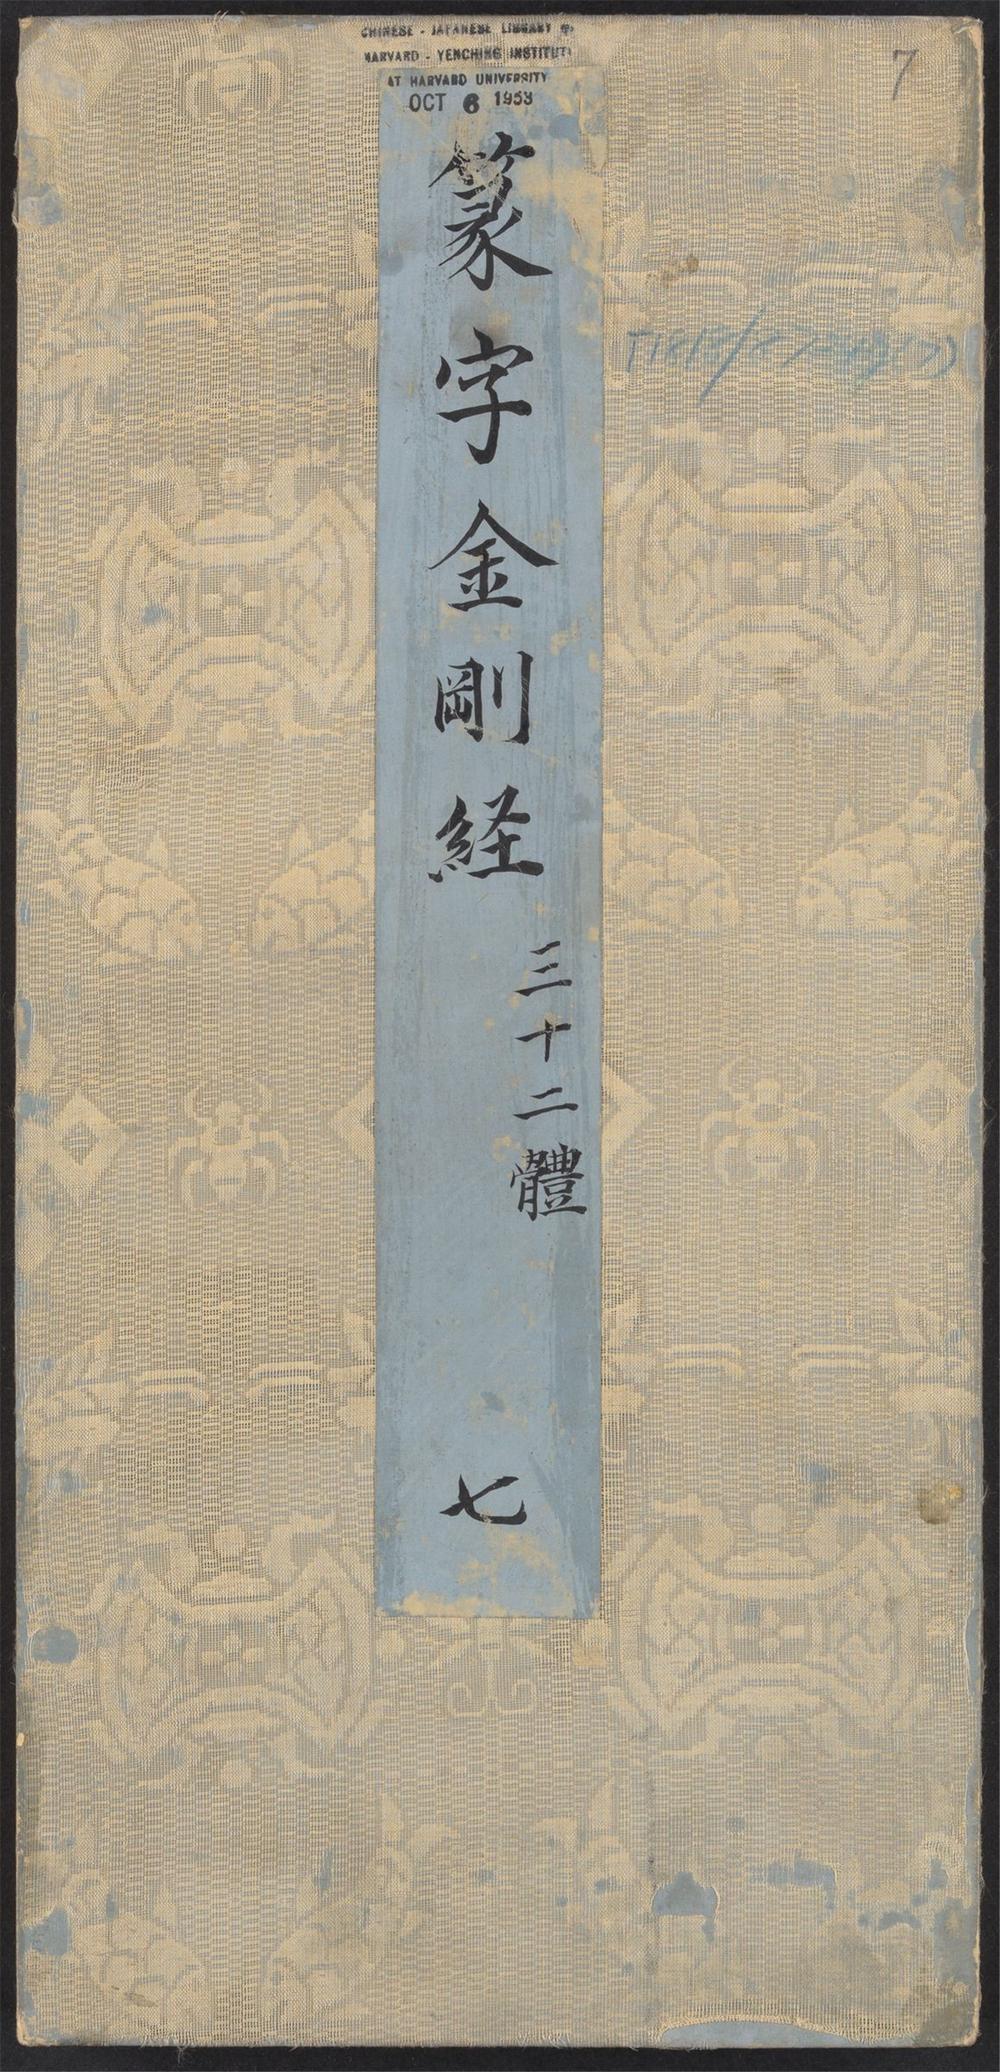 CHINESE - JAPANESE LIBRARY
HARVARD - YENCHING INSTITUT
AT HARVARD UNIVERSITY
OCT 6 1953
7
篆字金剛経
三十二體
七